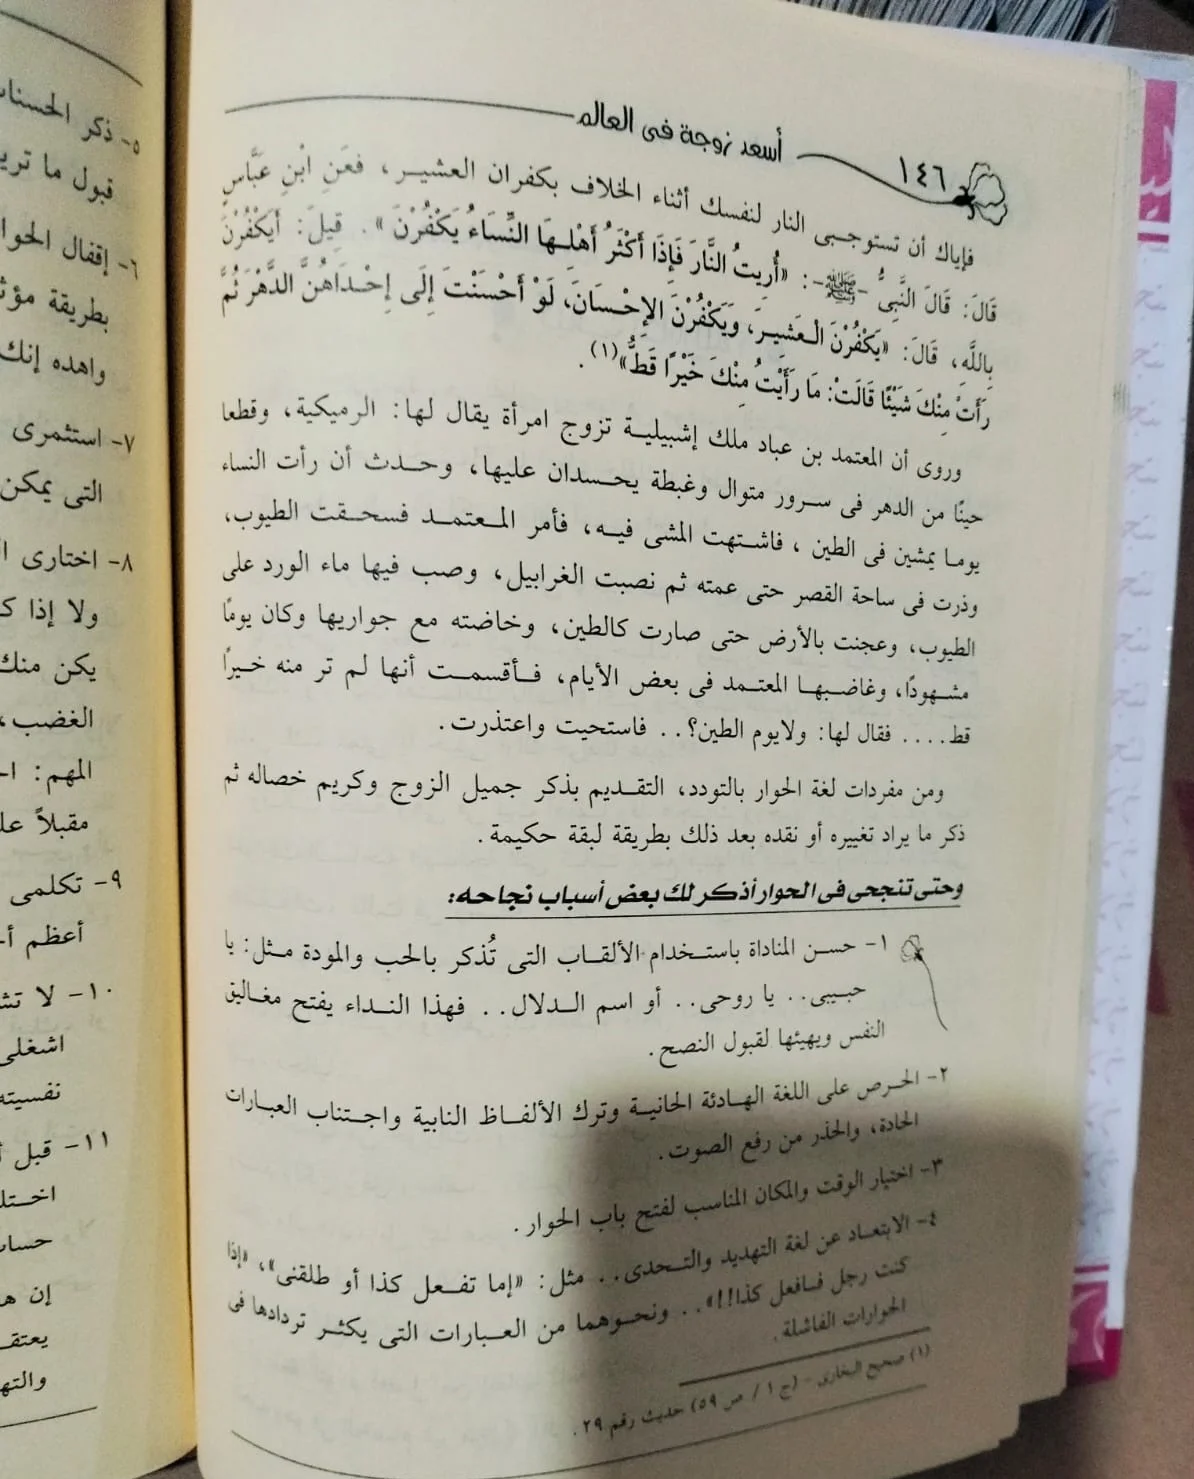 ١٤٦ أسعد زوجة فى العالم
فإياك أن تستوجبى النار لنفسك أثناء الخلاف بكفران العشير، فعَنِ ابْنِ عَبَّاسٍ
قَالَ: قَالَ النَّبِىُّ -ﷺ-: «أُرِيتُ النَّارَ فَإِذَا أَكْثَرُ أَهْلِهَا النِّسَاءُ يَكْفُرْنَ». قِيلَ: أَيَكْفُرْنَ
بِاللَّهِ، قَالَ: «يَكْفُرْنَ الْعَشِيرَ، وَيَكْفُرْنَ الإِحْسَانَ، لَوْ أَحْسَنْتَ إِلَى إِحْدَاهُنَّ الدَّهْرَ ثُمَّ
رَأَتْ مِنْكَ شَيْئًا قَالَتْ: مَا رَأَيْتُ مِنْكَ خَيْرًا قَطُّ»(١).
وروى أن المعتمد بن عباد ملك إشبيلية تزوج امرأة يقال لها: الرميكية، وقطعا
حينًا من الدهر فى سرور متوال وغبطة يحسدان عليها، وحدث أن رأت النساء
يوما يمشين فى الطين ، فاشتهت المشى فيه، فأمر المعتمد فسحقت الطيوب،
وذرت فى ساحة القصر حتى عمته ثم نصبت الغرابيل، وصب فيها ماء الورد على
الطيوب، وعجنت بالأرض حتى صارت كالطين، وخاضته مع جواريها وكان يومًا
مشهودًا، وغاضبها المعتمد فى بعض الأيام، فأقسمت أنها لم تر منه خيرًا
قط.... فقال لها: ولايوم الطين؟.. فاستحيت واعتذرت.
ومن مفردات لغة الحوار بالتودد، التقديم بذكر جميل الزوج وكريم خصاله ثم
ذكر ما يراد تغييره أو نقده بعد ذلك بطريقة لبقة حكيمة.
وحتى تنجحى فى الحوار أذكر لك بعض أسباب نجاحه:
١- حسن المناداة باستخدام الألقاب التى تُذكر بالحب والمودة مثل: يا
حبيبى.. يا روحى.. أو اسم الدلال.. فهذا النداء يفتح مغاليق
النفس ويهيئها لقبول النصح.
٢- الحرص على اللغة الهادئة الحانية وترك الألفاظ النابية واجتناب العبارات
الحادة، والحذر من رفع الصوت.
٣- اختيار الوقت والمكان المناسب لفتح باب الحوار.
٤- الابتعاد عن لغة التهديد والتحدى.. مثل: «إما تفعل كذا أو طلقنى»، «إذا
كنت رجل فافعل كذا!!».. ونحوهما من العبارات التى يكثر تردادها فى
الحوارات الفاشلة.
(١) صحيح البخارى - (ج ١ / ص ٥٩) حديث رقم ٢٩.
٥- ذكر
قبول ما
٦- إقفال
بطريقة
واهده إنك
٧- استثمرى
التى يمكن
٨- اختارى
ولا إذا
يكن منك
الغضب،
المهم:
مقبلاً
٩- تكلمى
أعظم
١٠- لا
اشغلى
نفسيته
١١- قبل
إن